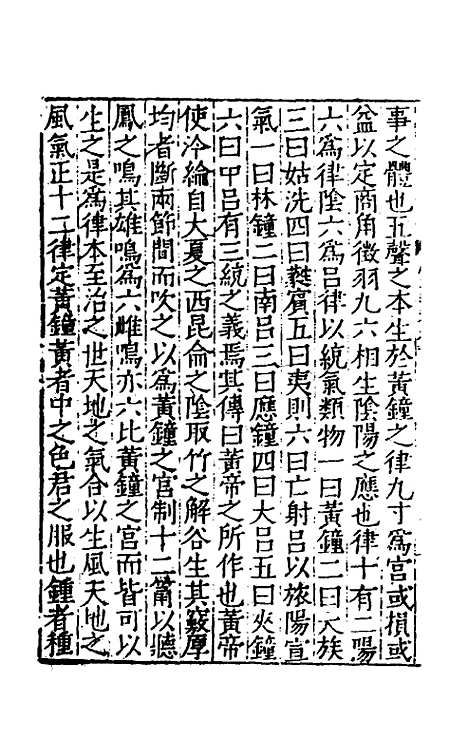 事之體也五聲之本生於黃鐘之律九寸爲宮或損或
益以定商角徵羽九六相生陰陽之應也律十有二陽
六爲律陰六爲呂律以統氣類物一曰黃鐘二曰太族
三曰姑洗四曰蕤賓五曰夷則六曰亡射呂以旅陽宣
氣一曰林鐘二曰南呂三曰應鐘四曰大呂五曰夾鐘
六曰中呂有三統之義焉其傳曰黃帝之所作也黃帝
使泠綸自大夏之西昆侖之陰取竹之解谷生其竅厚
均者斷兩節間而吹之以爲黃鐘之宮制十二筩以聽
鳳之鳴其雄鳴爲六雌鳴亦六比黃鐘之宮而皆可以
生之是爲律本至治之世天地之氣合以生風天地之
風氣正十二律定黃鐘黃者中之色君之服也鍾者種